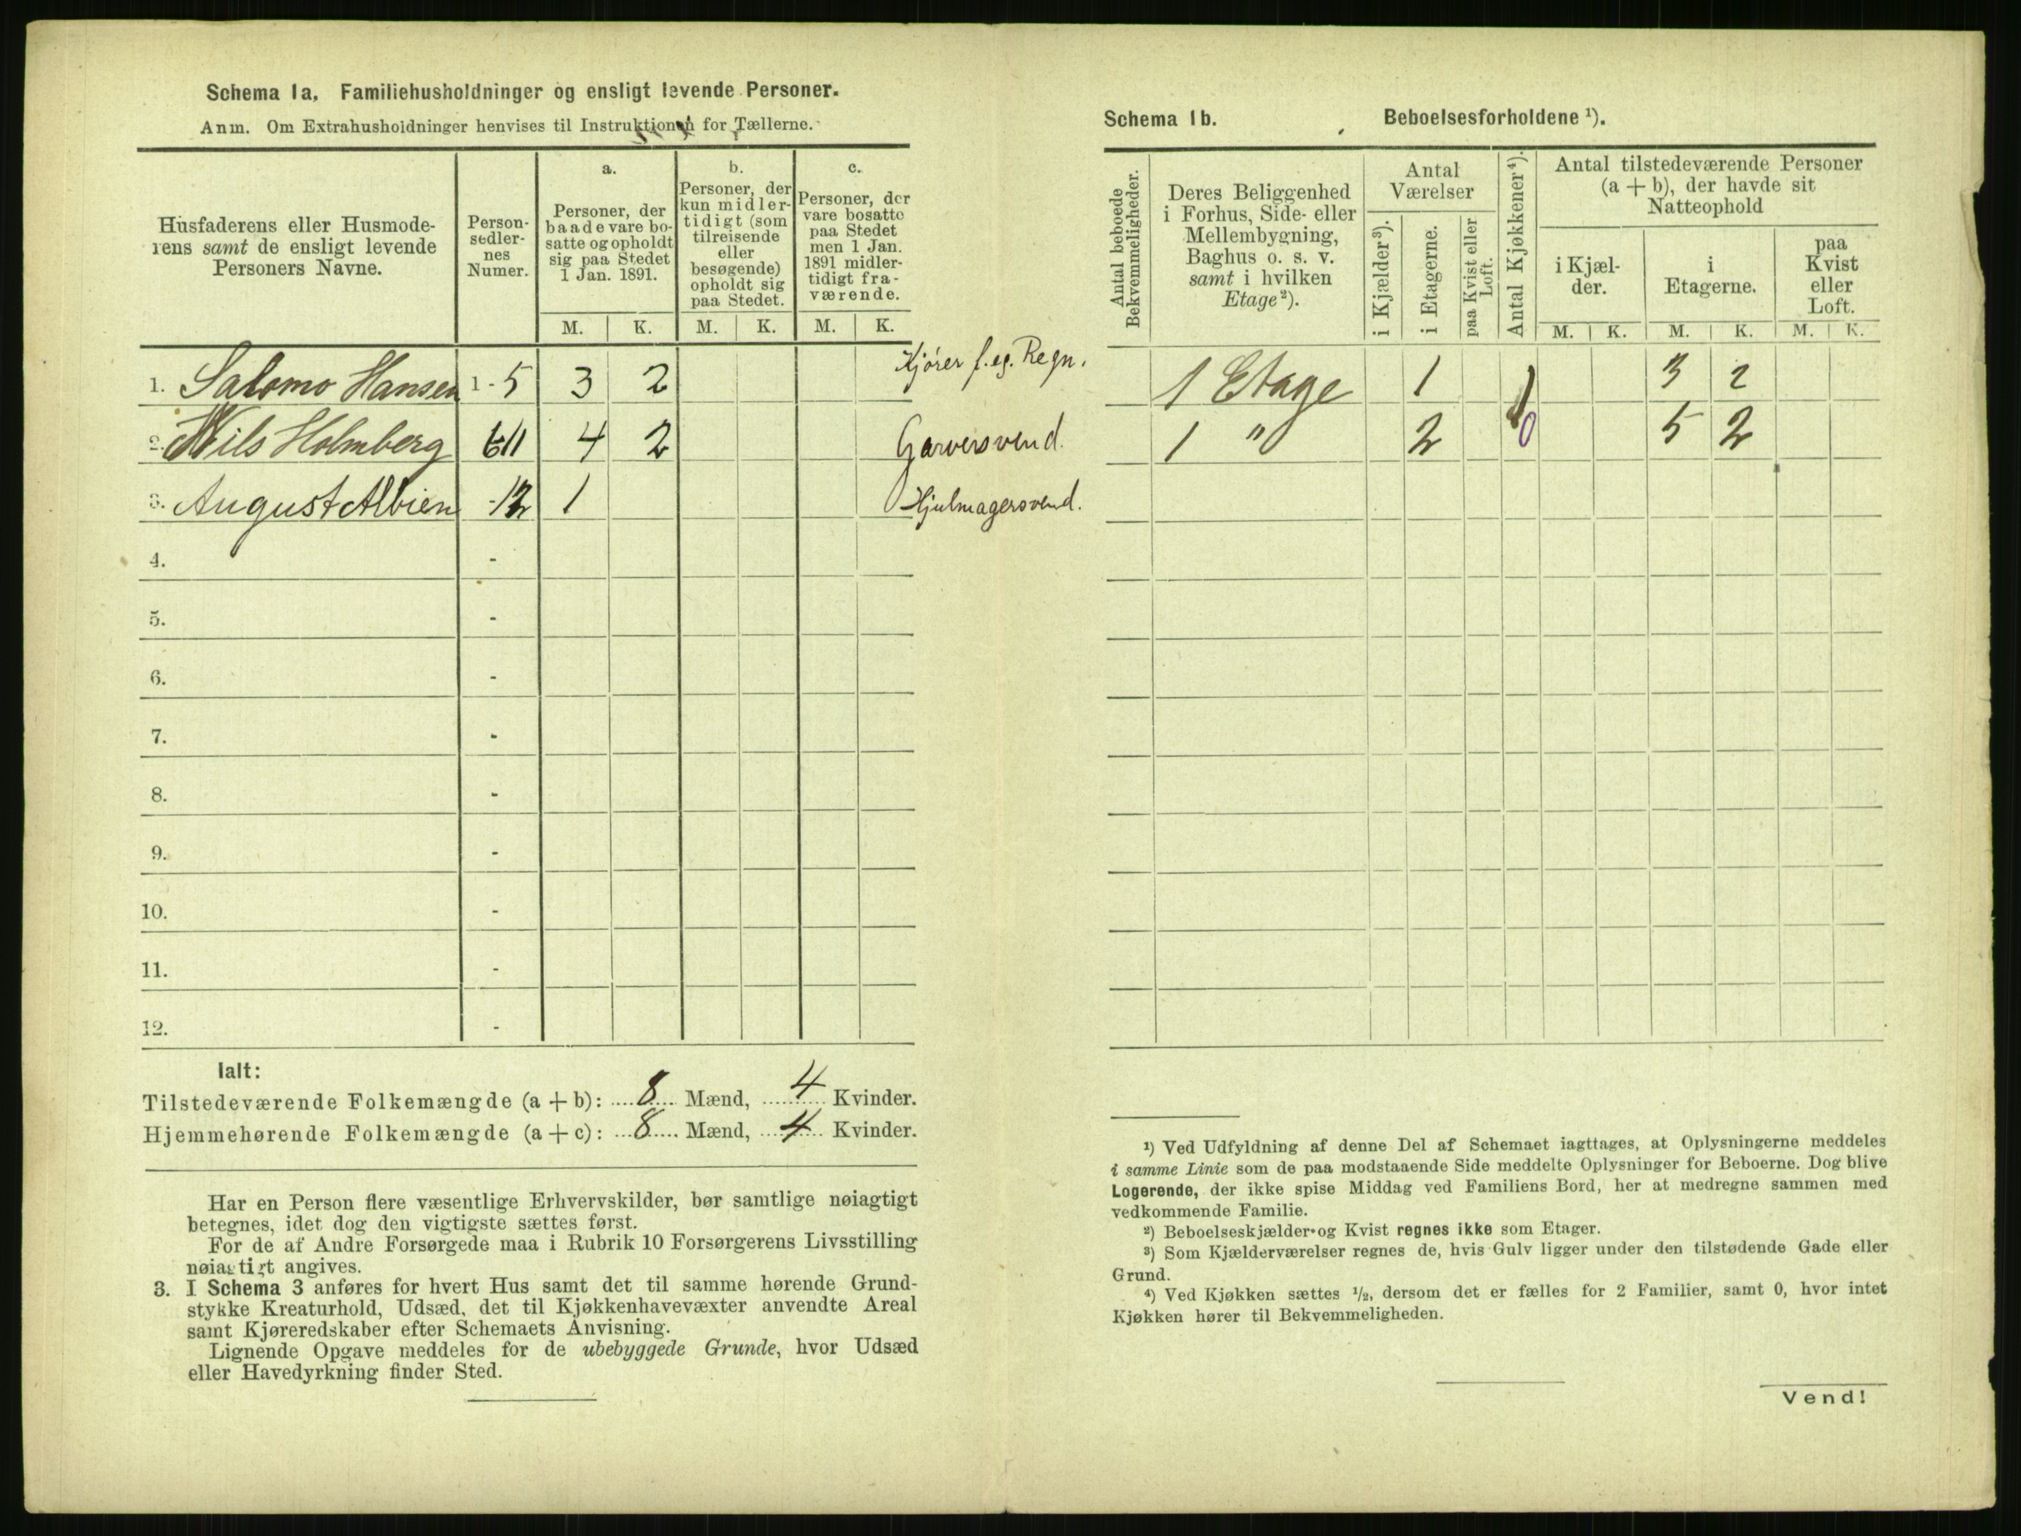 Schema 1a. Familiehusholdninger og ensligt levende Personer.
Anm. Om Extrahusholdninger henvises til Instruktionen for Tællerne.
Husfaderens eller Husmode-
rens samt de ensligt levende
Personers Navne.
Person-
sedler-
nes
Numer.
a.
Personer, der
baade vare bo-
satte og opholdt
sig paa Stedet
1 Jan. 1891.
b.
Personer, der
kun midler-
tidigt (som
tilreisende
eller
besøgende)
opholdt sig
paa Stedet.
c.
Personer, der
vare bosatte
paa Stedet
men 1 Jan.
1891 midler-
tidigt fra-
værende.
M. K. M. K. M. K.
1. Salomo Hansen 1 - 5 3 2 Kjører f. eg. Regn.
2. Nils Holmberg 6-11 4 2 Garversvend.
3. August Albien -12 1 Hjulmagersvend.
4. -
5. -
6. -
7. -
8. -
9. -
10. -
11. -
12. -
Ialt:
Tilstedeværende Folkemængde (a + b): 8 Mænd, 4 Kvinder.
Hjemmehørende Folkemængde (a + c): 8 Mænd, 4 Kvinder.
Har en Person flere væsentlige Erhvervskilder, bør samtlige nøiagtigt
betegnes, idet dog den vigtigste sættes først.
For de af Andre Forsørgede maa i Rubrik 10 Forsørgerens Livsstilling
nøiagtigt angives.
3. I Schema 3 anføres for hvert Hus samt det til samme hørende Grund-
stykke Kreaturhold, Udsæd, det til Kjøkkenhavevæxter anvendte Areal
samt Kjøreredskaber efter Schemaets Anvisning.
Lignende Opgave meddeles for de ubebyggede Grunde, hvor Udsæd
eller Havedyrkning finder Sted.
Schema 1b. Beboelsesforholdene ¹).
Antal beboede
Bekvemmeligheder.
Deres Beliggenhed
i Forhus, Side- eller
Mellembygning,
Baghus o. s. v.
samt i hvilken
Etage ²).
Antal
Værelser
i Kjælder ³).
i Etagerne.
paa Kvist eller
Loft.
Antal Kjøkkener ⁴).
Antal tilstedeværende Personer
(a + b), der havde sit
Natteophold
i Kjæl-
der.
i
Etagerne.
paa
Kvist
eller
Loft.
M. K. M. K. M. K.
1 Etage 1 1 3 2
1 " 2 0 5 2
¹) Ved Udfyldning af denne Del af Schemaet iagttages, at Oplysningerne meddeles
i samme Linie som de paa modstaaende Side meddelte Oplysninger for Beboerne. Dog blive
Logerende, der ikke spise Middag ved Familiens Bord, her at medregne sammen med
vedkommende Familie.
²) Beboelseskjælder og Kvist regnes ikke som Etager.
³) Som Kjælderværelser regnes de, hvis Gulv ligger under den tilstødende Gade eller
Grund.
⁴) Ved Kjøkken sættes ½, dersom det er fælles for 2 Familier, samt 0, hvor intet
Kjøkken hører til Bekvemmeligheden.
Vend!